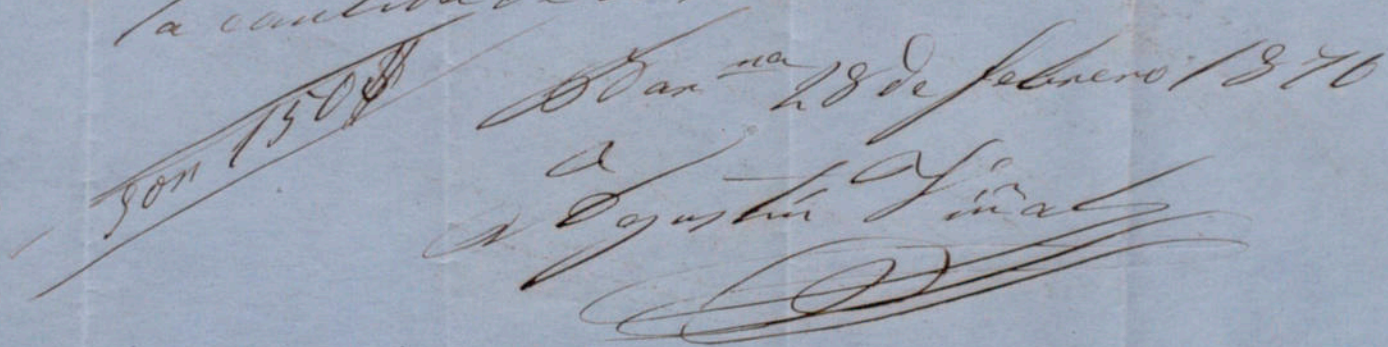 la cantidad de
Son 150$
Bar^na 28 de febrero 1870
Agustín Piñal